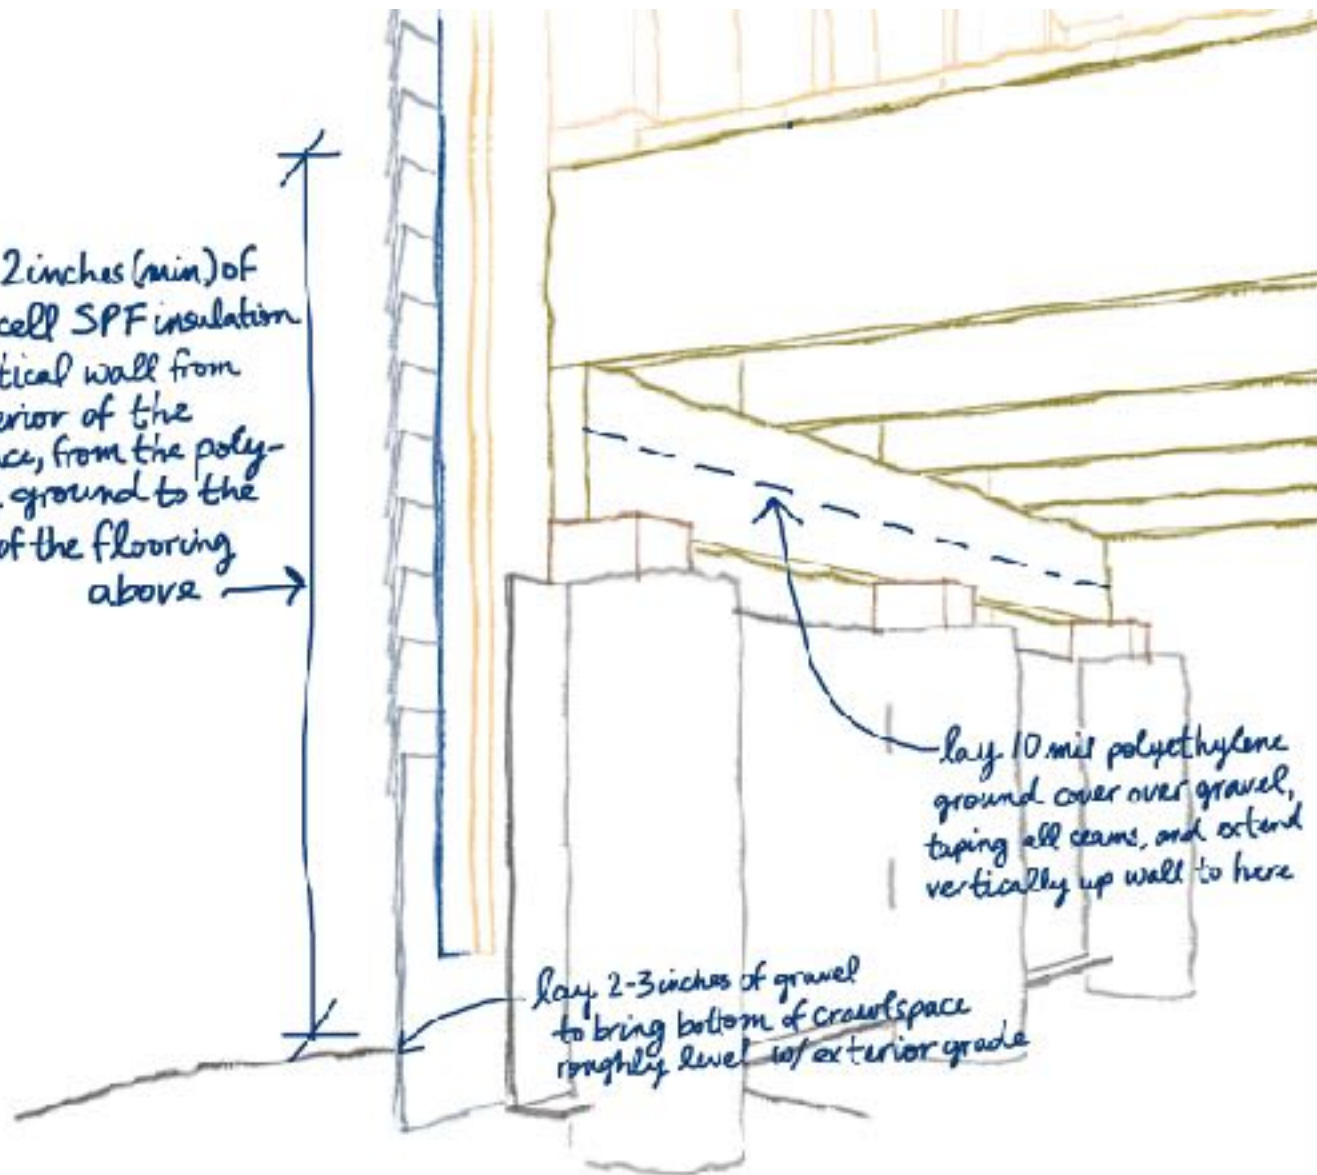 2 inches (min) of
cell SPF insulation
tical wall from
erior of the
ce, from the poly-
ground to the
of the flooring
above
lay 10 mil polyethylene
ground cover over gravel,
taping all seams, and extend
vertically up wall to here
lay 2-3 inches of gravel
to bring bottom of crawlspace
roughly level w/ exterior grade